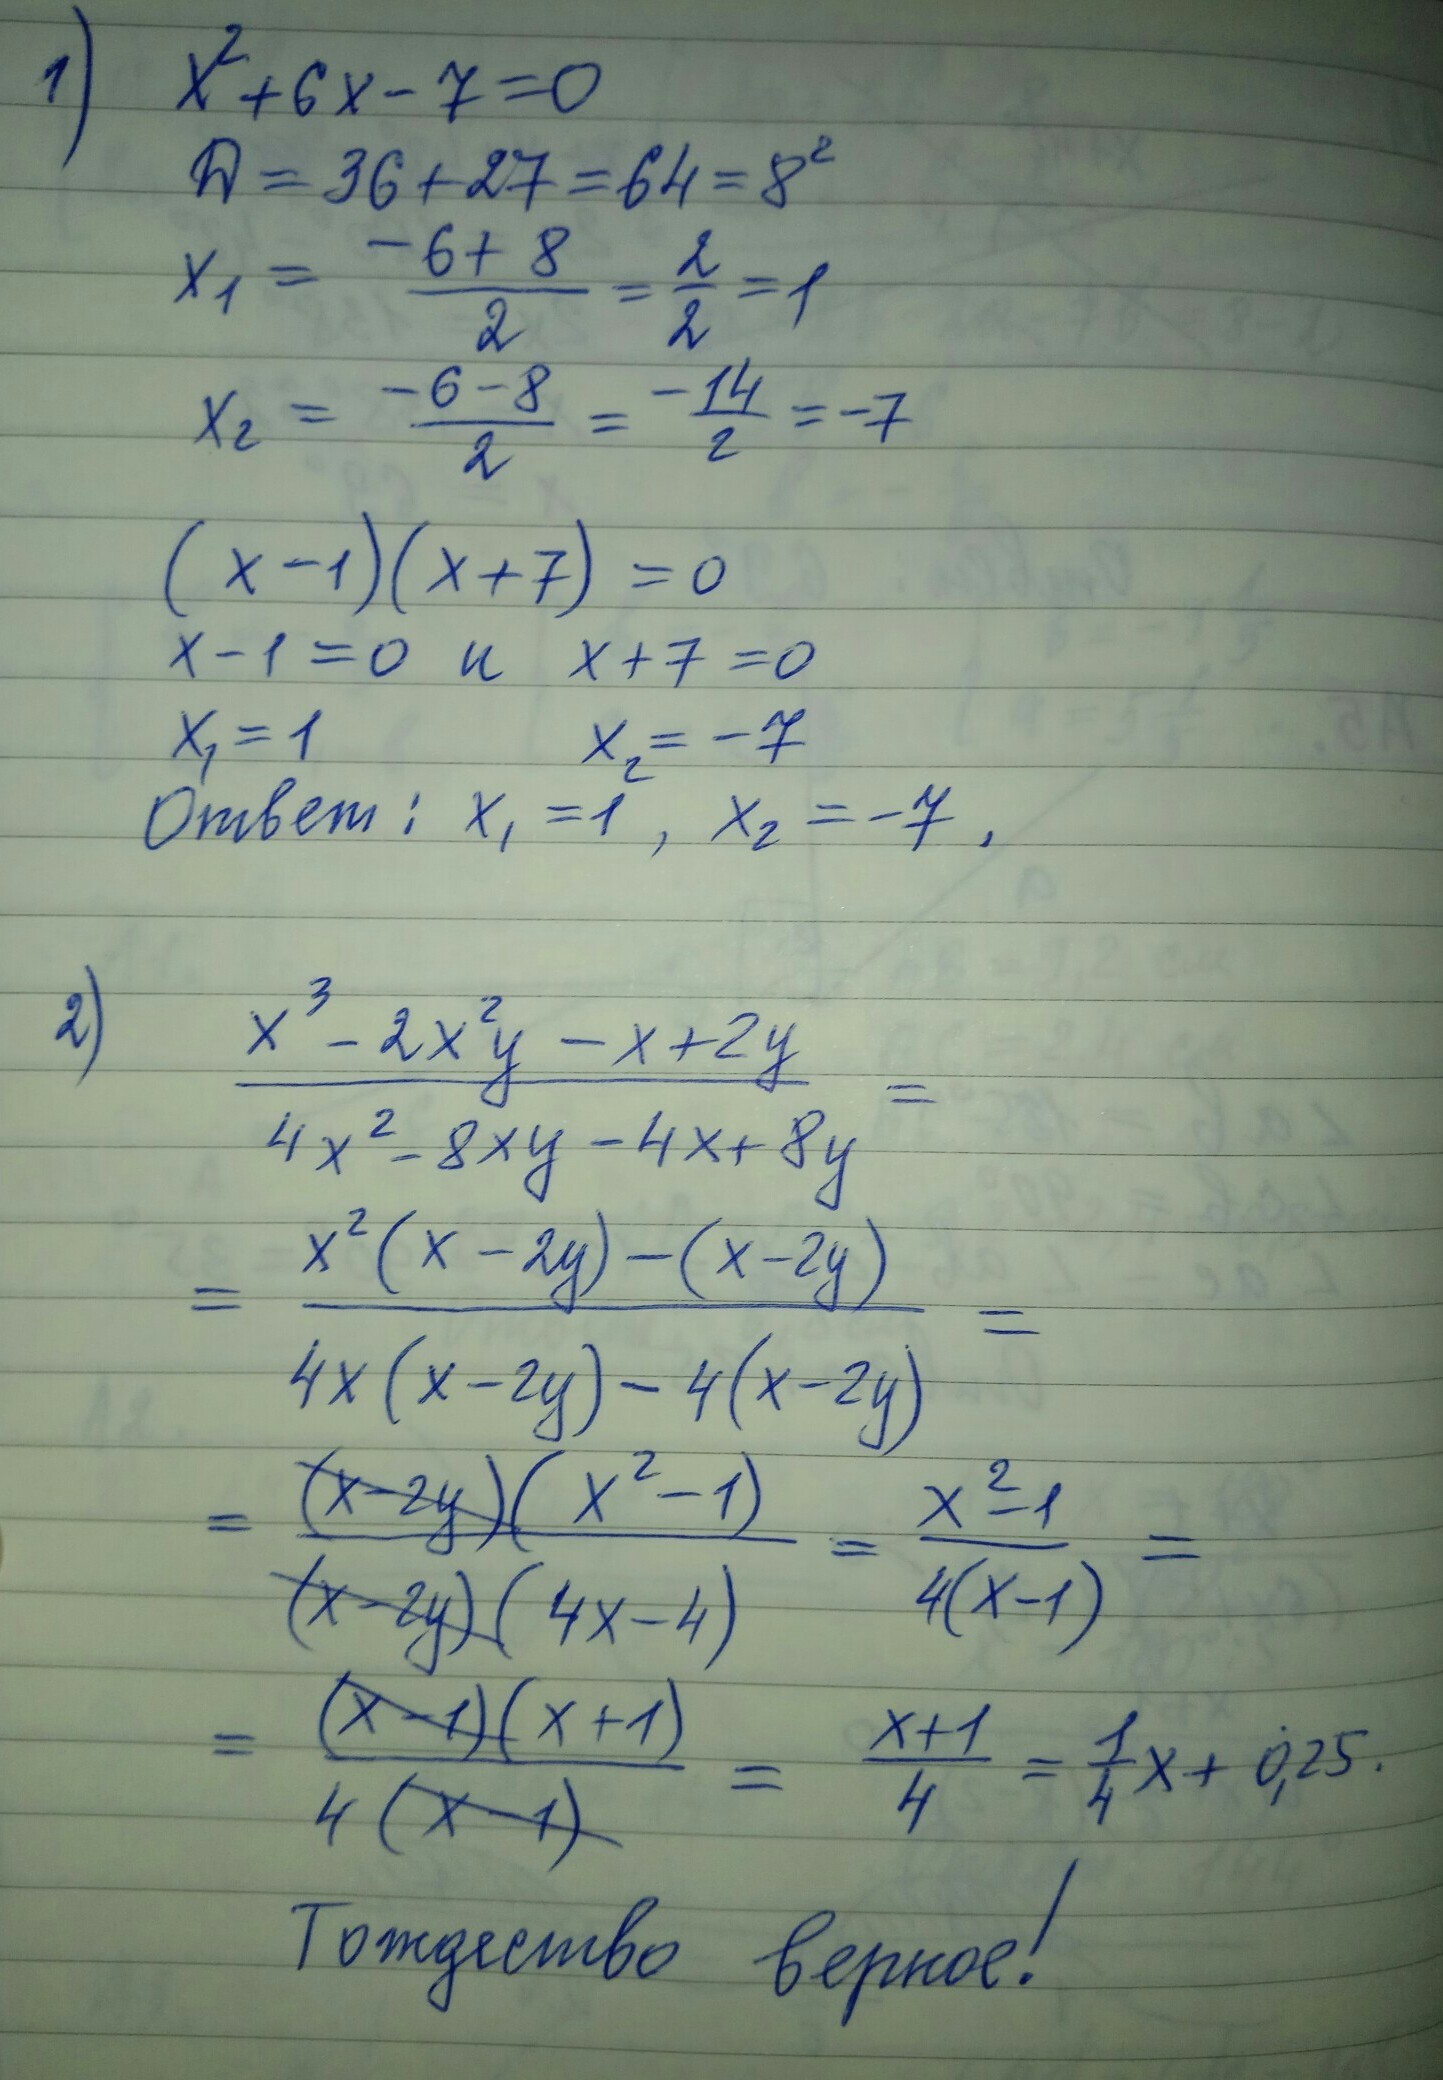 1) x²+6x-7=0
D = 36+27=64=8²
x₁ = (-6+8)/2 = 2/2 = 1
x₂ = (-6-8)/2 = -14/2 = -7
(x-1)(x+7)=0
x-1=0 и x+7=0
x₁=1 x₂=-7
Ответ: x₁=1, x₂=-7.
2) (x³-2x²y-x+2y)/(4x²-8xy-4x+8y) =
= (x²(x-2y)-(x-2y))/(4x(x-2y)-4(x-2y)) =
= ((x-2y)(x²-1))/((x-2y)(4x-4)) = (x²-1)/(4(x-1)) =
= ((x-1)(x+1))/(4(x-1)) = (x+1)/4 = 1/4x+0,25.
Тождество верное!